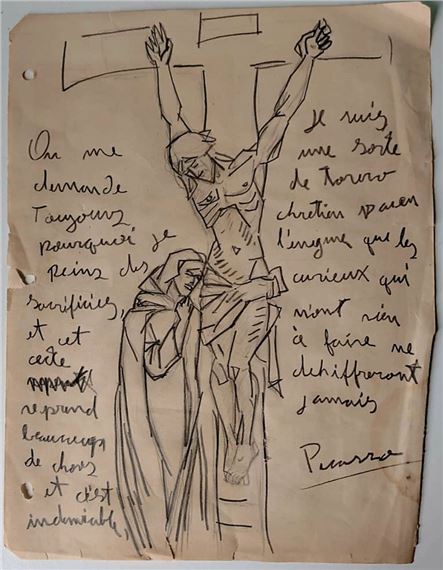 On me
demande
Toujours
pourquoi je
peins des
sacrifices,
et cet
certe
reprend
beaucoup
de choses
et c'est
indeniable,
Je suis
une sorte
de Torero
chrétien paien
l'enigme que les
curieux qui
n'ont rien
à faire ne
dechiffreront
jamais
Picasso